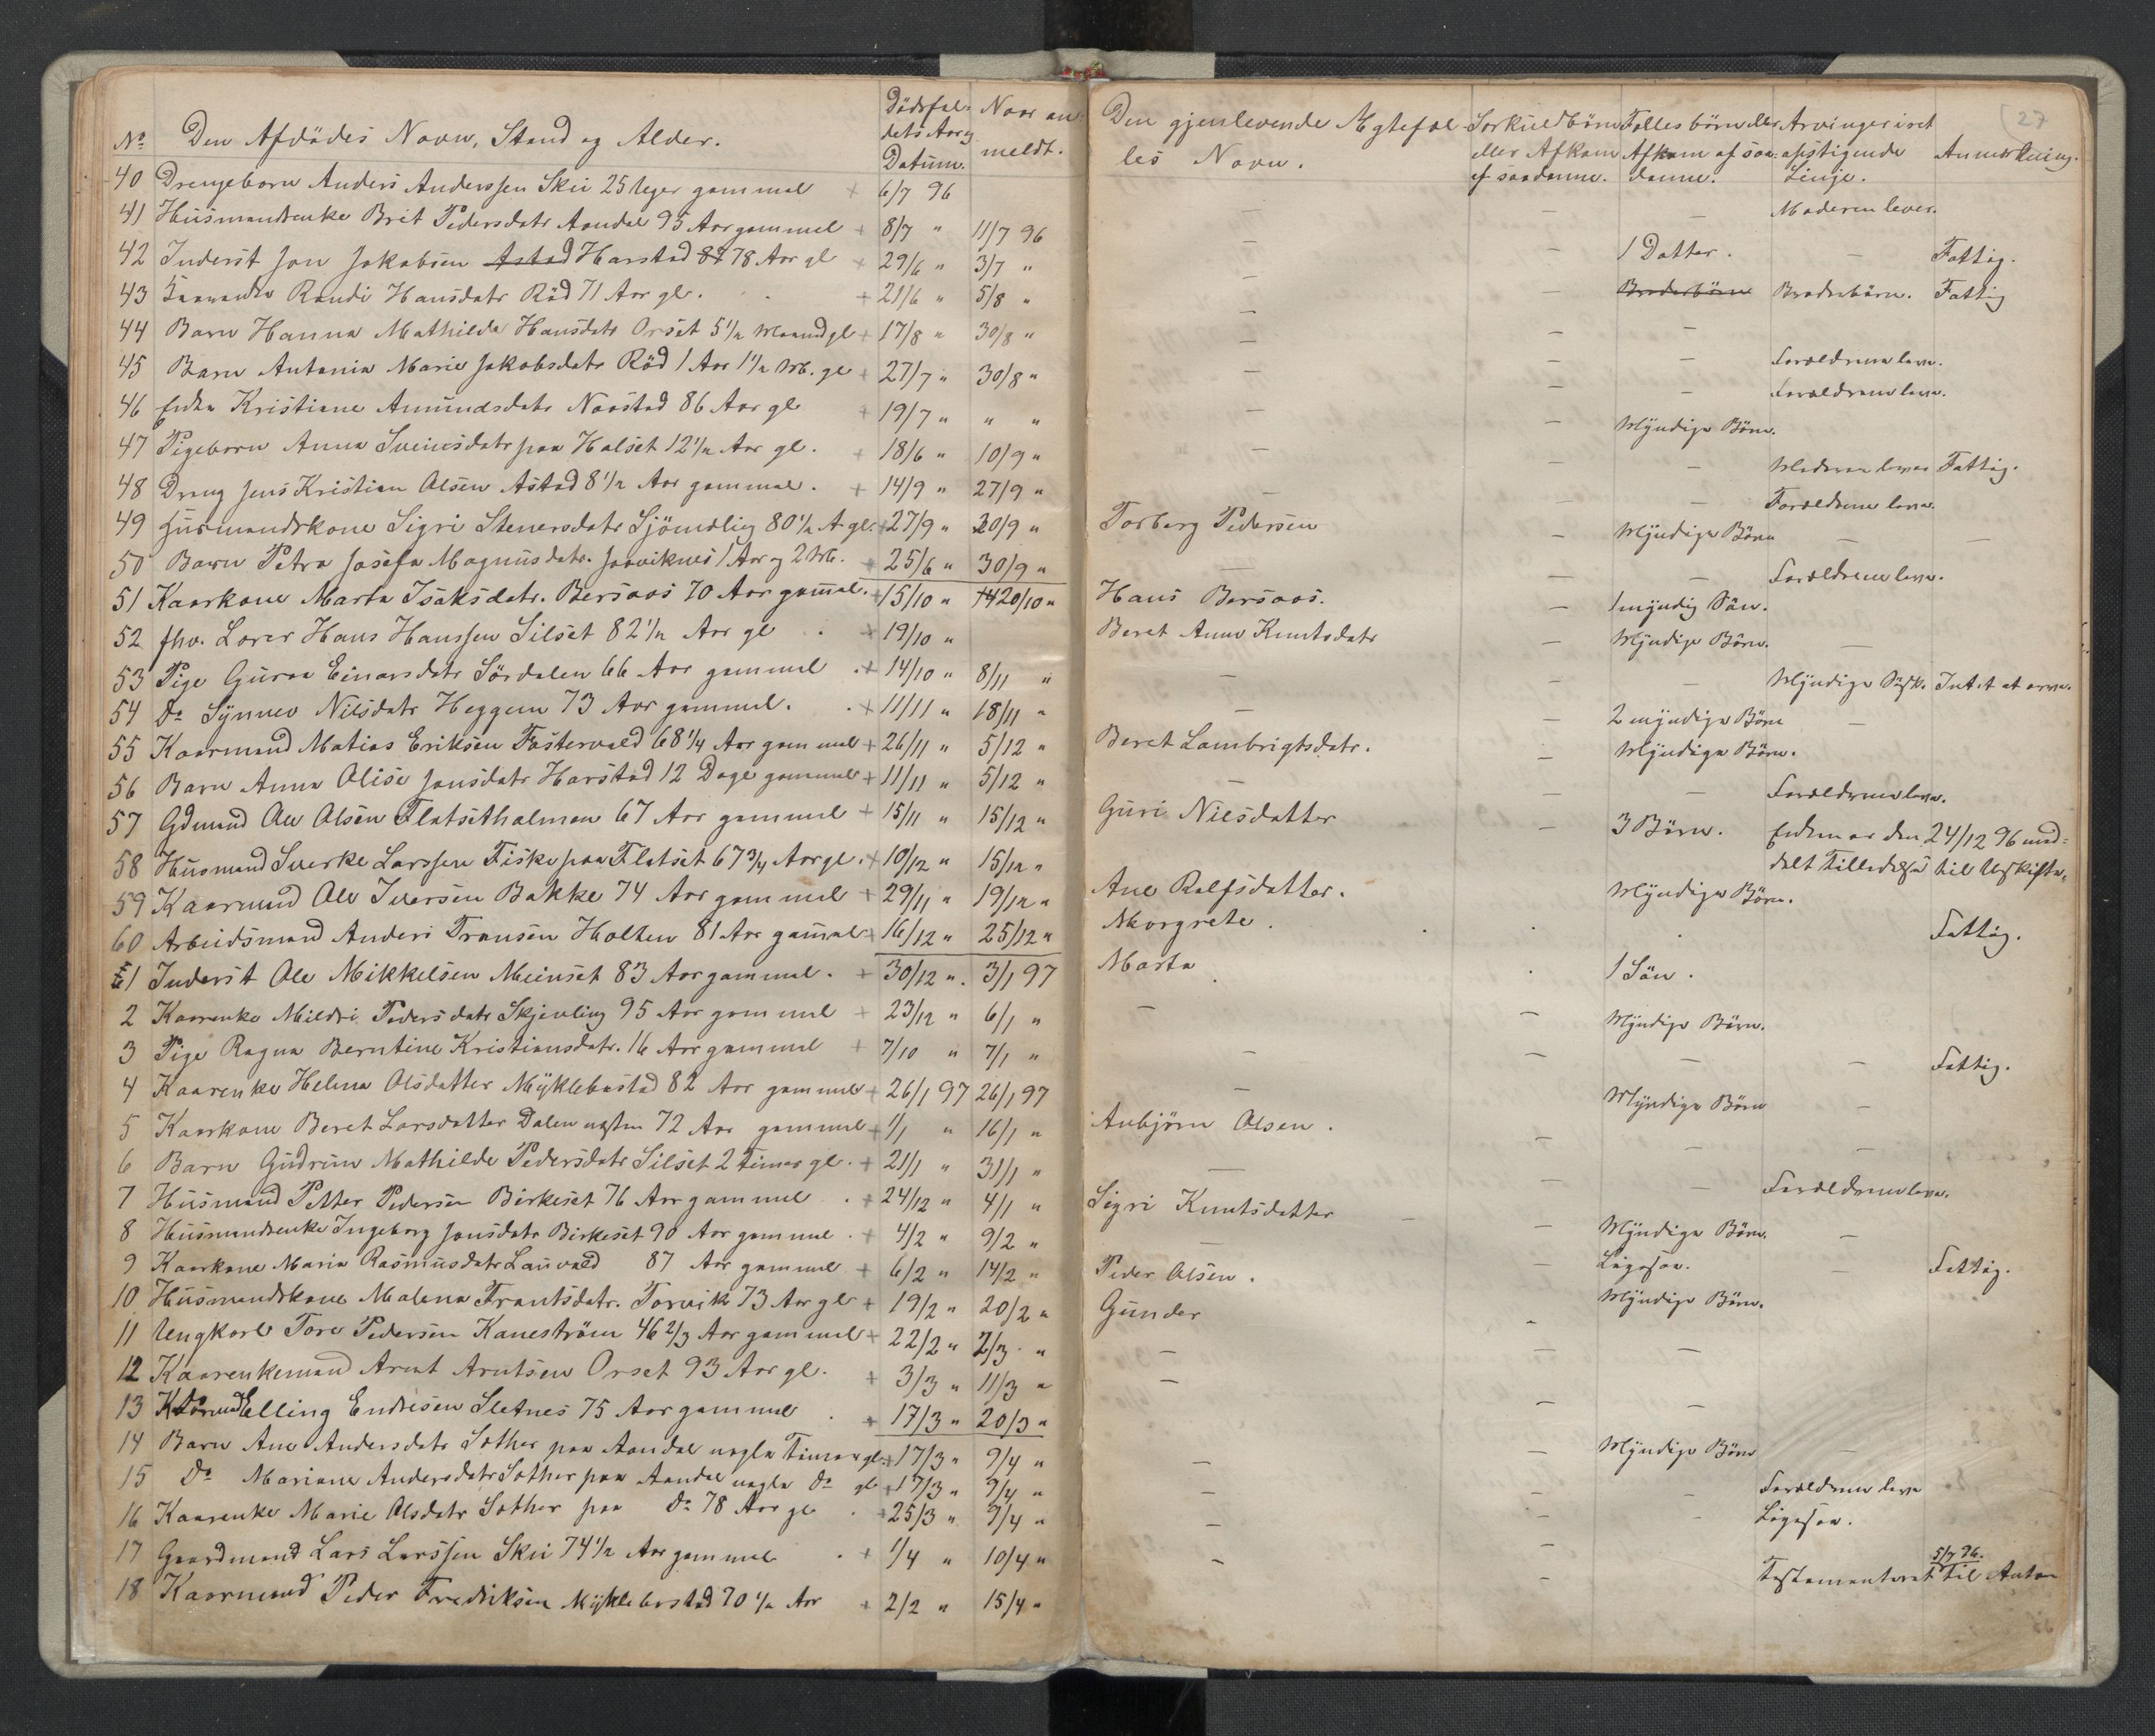 27
No Den Afdödes Navn, Stand og Alder. Dödsfal- Naar an-
dets Aar og meldt.
Datum.
Den gjenlevende Ægtefæl- Særkuldbörn Fælles börn eller Arvinger i ret
les Navn. eller Afkom Afkom af saa- opstigende Anmærkning.
af saadanne. danne. Linje.
40 Drengebarn Anders Anderssen Skei 25 Uger gammel + 6/7 96 — — — Moderen lever.
41 Husmandsenke Brit Pedersdatr Aandal 95 Aar gammel + 8/7 " 11/7 96 — — 1 Datter. — Fattig.
42 Inderst Jon Jakobsen Astad Harstad 87 78 Aar gl + 29/6 " 3/7 " — — Broderbörn Broderbörn. Fattig
43 Randi Hansdatr Röd 71 Aar gl. + 21/6 " 5/8 " — — —
44 Barn Hanna Mathilde Hansdatr Orset 5 1/2 Maaned gl + 17/8 " 30/8 " — — — Forældrene leve.
45 Barn Antonia Marie Jakobsdatr Röd 1 Aar 1 1/2 M. gl + 27/7 " 30/8 " — — — Forældrene leve.
46 Enke Kristiane Amundsdatr Naastad 86 Aar gl + 19/7 " " " — — Myndige Börn.
47 Pigebarn Anna Sveinsdatr paa Halset 12 1/2 Aar gl. + 18/6 " 10/9 " — — — Moderen lever Fattig.
48 Dreng Jens Kristian Olsen Astad 8 1/2 Aar gammel. + 14/9 " 27/9 " — — — Forældrene leve.
49 Husmandskone Sigri Stenersdatr Sjömœling 80 1/2 A gl. + 27/9 " 30/9 " Torberg Pedersen — Myndige Börn — —
50 Barn Petra Josefa Magnusdatr. Jaaviknes 1 Aar og 2 M. + 25/6 " 30/9 " — — — Forældrene leve.
51 Kaarkone Marta Isaksdatr. Bersaas 70 Aar gammel. + 15/10 " 20/10 " Hans Bersaas. — 1 myndig Sön.
52 fhv. Lærer Hans Hanssen Silset 82 1/2 Aar gl + 19/10 " Beret Anne Knutsdatr — Myndige Börn. —
53 Pige Guroa Einarsdatr Sördalen 66 Aar gammel + 14/10 " 8/11 " — — — Myndige Sösk. Intet at arve.
54 Do Synnev Nilsdatr Heggem 73 Aar gammel. + 11/11 " 18/11 " — — 2 myndige Börn —
55 Kaarmand Matias Eriksen Fostervold 68 1/4 Aar gammel + 26/11 " 5/12 " Beret Lambrigtsdatr. — Myndige Börn.
56 Barn Anna Olise Jonsdatr Harstad 12 Dage gammel + 11/11 " 5/12 " — — — Forældrene leve.
57 Gdmand Ole Olsen Flatsetholmen 67 Aar gammel + 15/11 " 15/12 " Guri Nilsdatter — 3 Börn. Enken er den 24/12 96 med-
delt Tilladelse til Uskifte.
58 Husmand Sverke Larssen Fiske paa Flatset 67 3/4 Aar gl. + 10/12 " 15/12 " Ane Ralfsdatter. Myndige Börn.
59 Kaarmand Ole Iversen Bakke 74 Aar gammel + 29/11 " 19/12 " Margrete. Fattig.
60 Arbeidsmand Anders Fransen Holten 81 Aar gammel + 16/12 " 25/12 " Marta 1 Sön.
1 Inderst Ole Mikkelsen Meinset 83 Aar gammel. + 30/12 " 3/1 97 — — Myndige Börn.
2 Kaarenke Mildri Pedersdatr Skjevling 95 Aar gammel + 23/12 " 6/1 " — — — — Fattig.
3 Pige Ragna Berntine Kristiansdatr. 16 Aar gammel + 7/10 " 7/1 " — Myndige Börn —
4 Kaarenke Helena Olsdatter Myklebostad 82 Aar gammel + 26/1 97 26/1 97
5 Kaarkone Beret Larsdatter Dalen næsten 72 Aar gammel + 1/1 " 16/1 " Anbjörn Olsen. — — —
6 Barn Gudrun Mathilde Pedersdatr Silset 2 Timer gl. + 21/1 " 31/1 " — — — Forældrene leve.
7 Husmand Petter Pedersen Birkeset 76 Aar gammel + 24/12 " 4/1 " Sigri Knutsdatter — Myndige Börn. —
8 Husmandsenke Ingeborg Jonsdatr Birkeset 90 Aar gammel. + 4/2 " 9/2 " — — Ligesaa. — Fattig.
9 Kaarkone Maria Rasmusdatr Lauvold 87 Aar gammel + 6/2 " 14/2 " Peder Olsen. — Myndige Börn.
10 Husmandskone Malena Frantsdatr. Torvik 73 Aar gl + 19/2 " 20/2 " Gunder
11 Ungkarl Tore Pedersen Kaneström 46 2/3 Aar gammel + 22/2 " 2/3 " — — —
12 Kaarenkemand Arnt Arntsen Orset 93 Aar gl. + 3/3 " 11/3 " — — —
13 Elling Endresen Sletnes 75 Aar gammel + 17/3 " 20/3 " — Myndige Börn —
14 Barn Ane Andersdatr Sother paa Aandal nogle Timer gl. + 17/3 " 9/4 " — — — Forældrene leve
15 Do Mariane Andersdatr Sother paa Aandal nogle Do gl + 17/3 " 9/4 " — — — Ligesaa.
16 Kaarenke Marie Olsdatr Sother paa do 78 Aar gl + 25/3 " 9/4 " — —
17 Gaardmand Lars Larssen Skei 74 1/2 Aar gammel + 1/4 " 10/4 " — — 5/7 76.
Testamenteret til Anton
18 Kaarmand Peder Fredriksen Myklebostad 70 1/2 Aar + 2/2 " 15/4 "